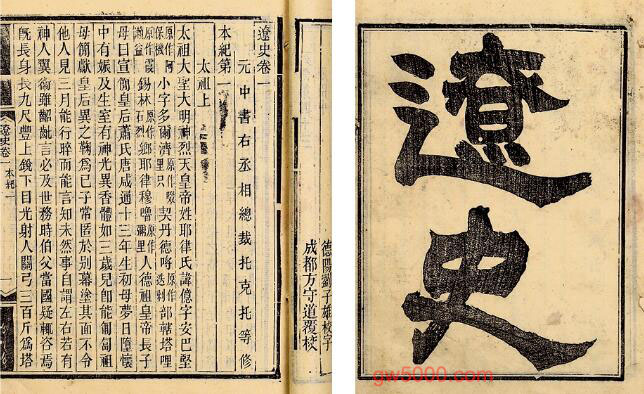 遼史
德陽劉子雄校字
成都方守道覆校
遼史卷一
元中書右丞相總裁托克托等修
本紀第一
太祖上
太祖大聖大明神烈天皇帝姓耶律氏諱億字安巴堅
原作阿保機小字多爾濟原作啜里只契丹德呼原作迭剌部轄塔哩
原作霞瀨益錫林原作石烈鄉耶律穆嚕原作彌里人德祖皇帝長子
母曰宣簡皇后蕭氏唐咸通十三年生初母夢日墮懷
中有娠及生室有神光異香體如三歲兒卽能匍匐祖
母簡獻皇后異之鞠爲己子常匿於别幕塗其面不令
他人見三月能行晬而能言知未然事自謂左右若有
神人翼衛雖齠齔言必及世務時伯父當國疑輒咨焉
既長身長九尺豐上銳下目光射人關弓三百斤爲塔
遼史卷一 本紀 一
gw5000.com